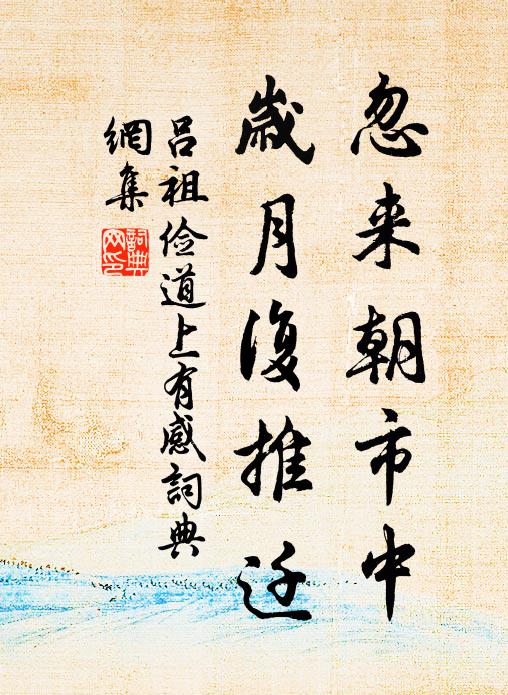 忽来朝市中
歳月復推迁
吕祖俭道上有感詞典
網集
詞典
网印